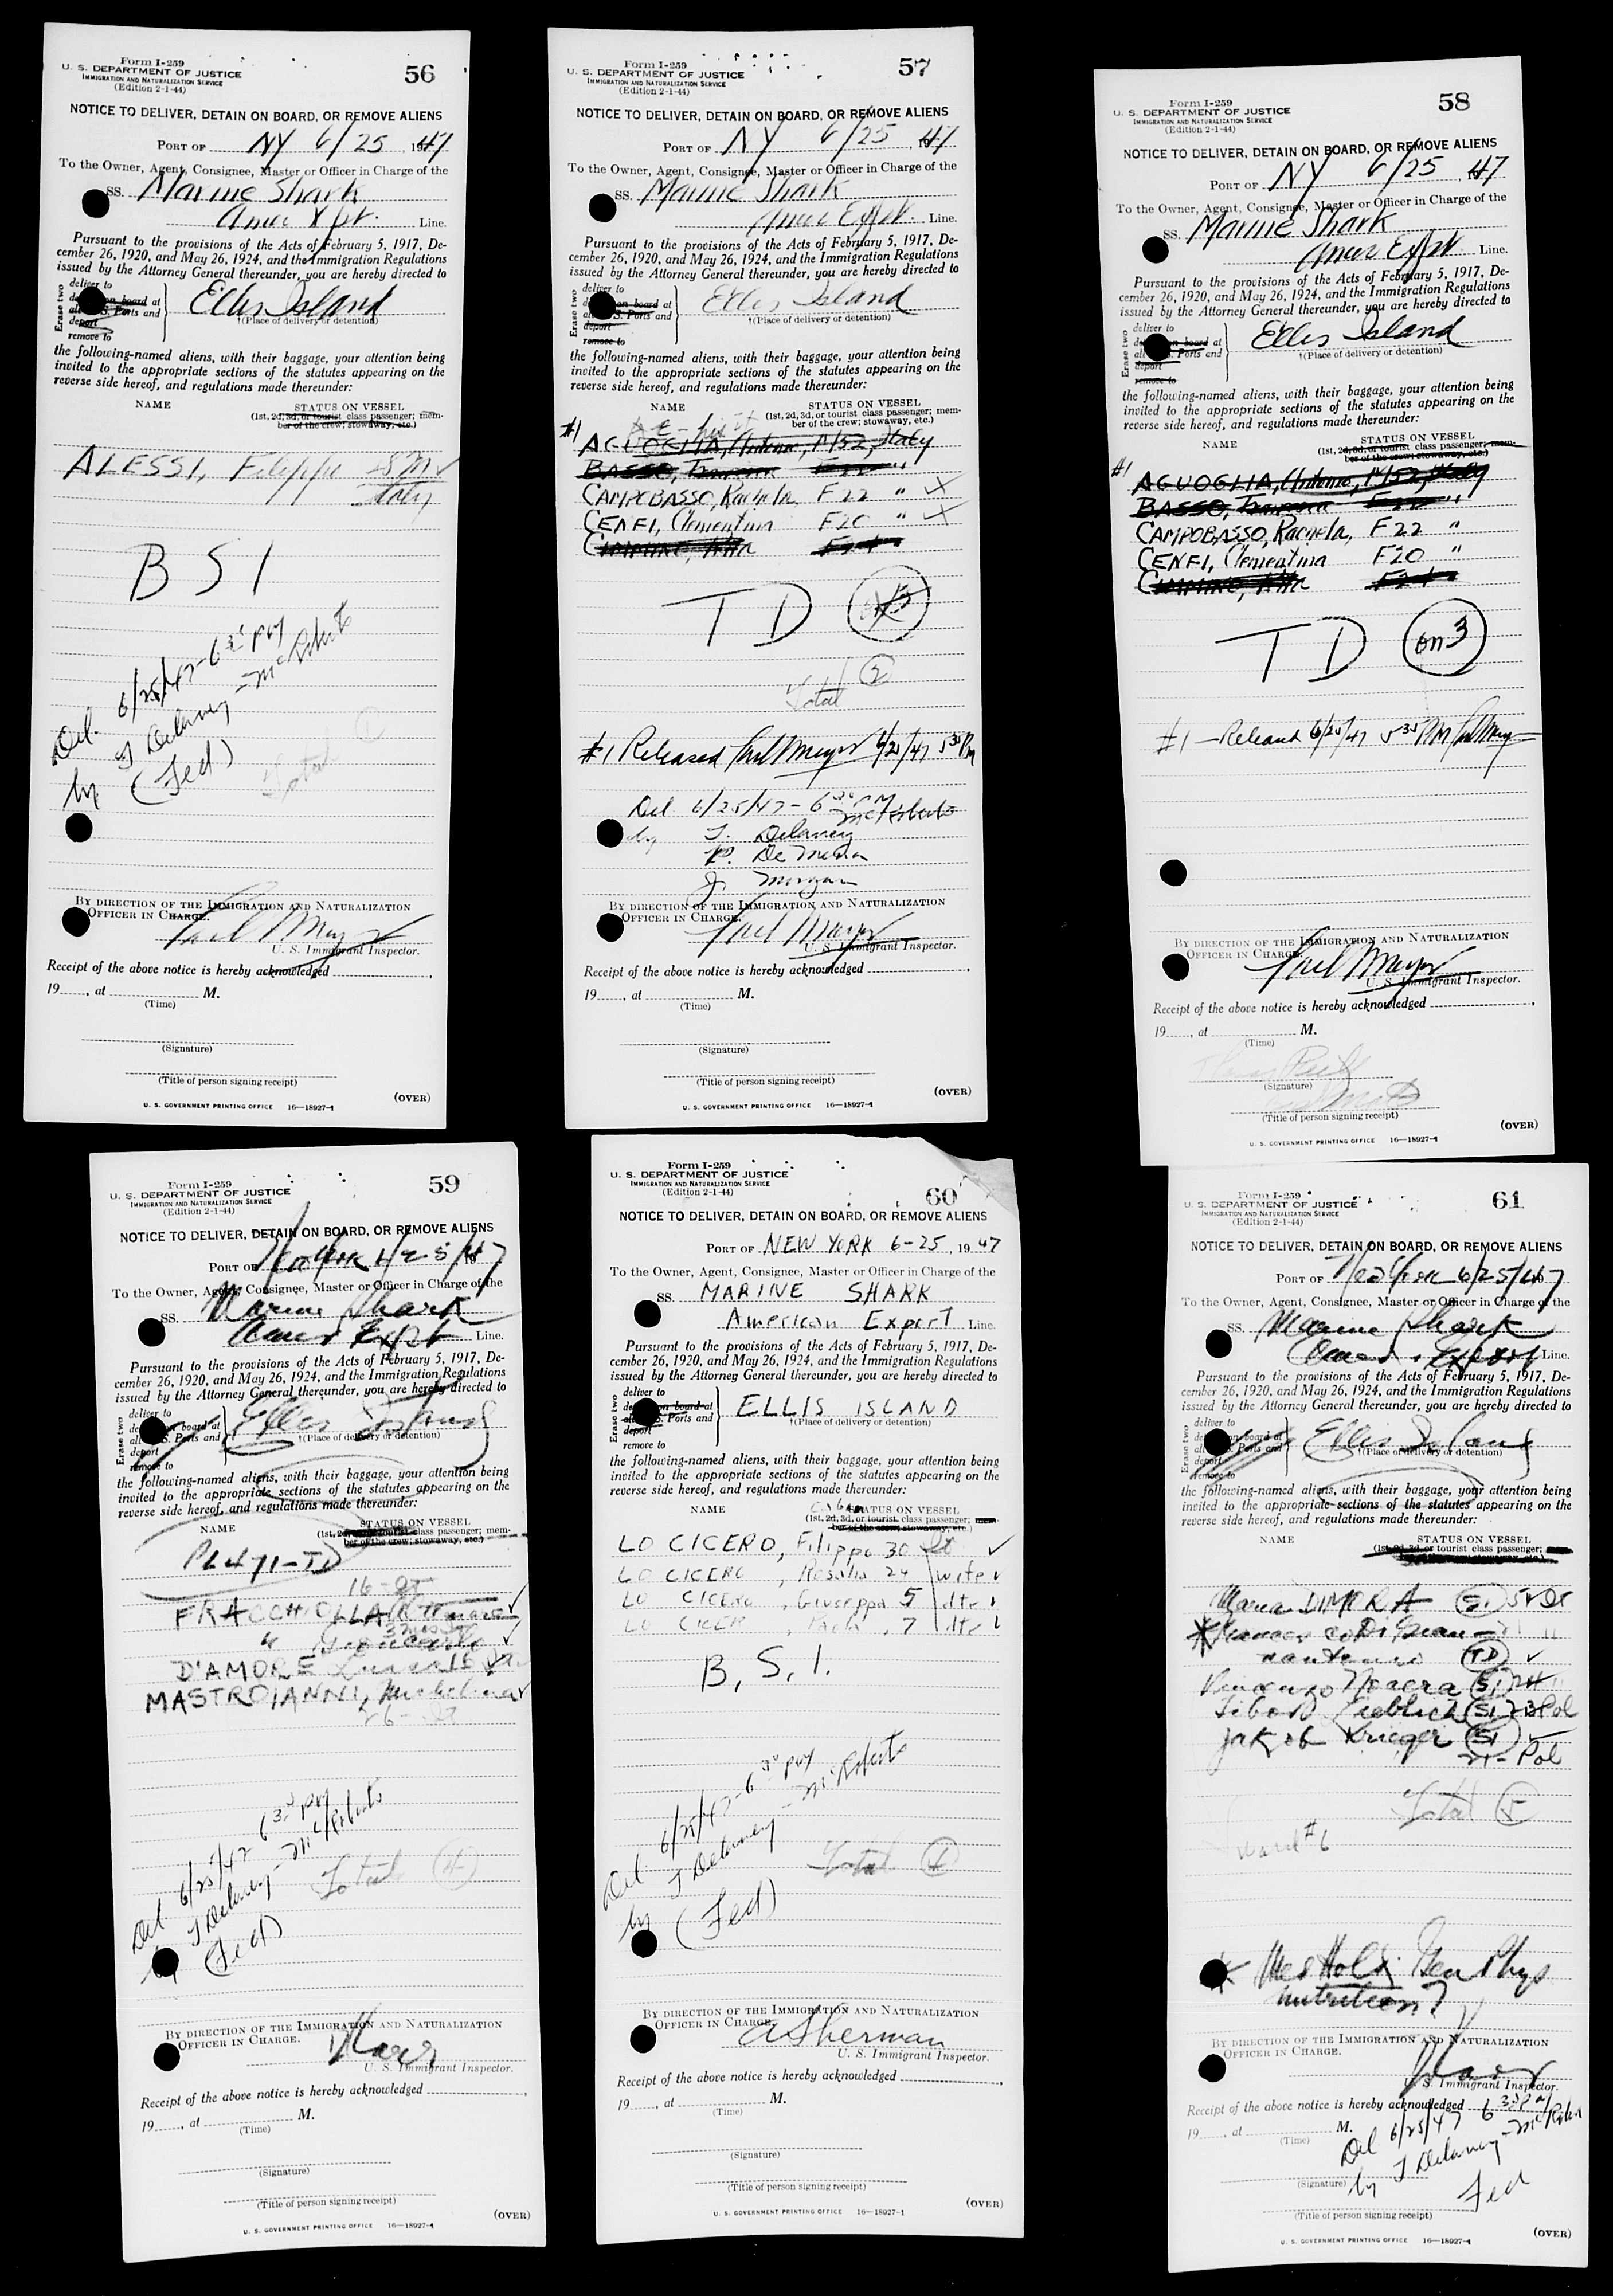 Form I-259
U. S. DEPARTMENT OF JUSTICE
IMMIGRATION AND NATURALIZATION SERVICE
(Edition 2-1-44)
56
NOTICE TO DELIVER, DETAIN ON BOARD, OR REMOVE ALIENS
PORT OF NY 6/25, 1947
To the Owner, Agent, Consignee, Master or Officer in Charge of the
SS. Marine Shark
Amer Xpt. Line.
Pursuant to the provisions of the Acts of February 5, 1917, De-
cember 26, 1920, and May 26, 1924, and the Immigration Regulations
issued by the Attorney General thereunder, you are hereby directed to
Erase two
deliver to
on board at
S. Ports and
deport
remove to
Ellis Island
†(Place of delivery or detention)
the following-named aliens, with their baggage, your attention being
invited to the appropriate sections of the statutes appearing on the
reverse side hereof, and regulations made thereunder:
NAME
STATUS ON VESSEL
(1st, 2d, 3d, or tourist class passenger; mem-
ber of the crew; stowaway, etc.)
ALESSI, Filippo
Italy
BSI
Del. 6/25/47-6 30 PM
by T Delaney - McRoberts
(Fed)
Total 1
BY DIRECTION OF THE IMMIGRATION AND NATURALIZATION
OFFICER IN CHARGE.
Paul Meyer
U. S. Immigrant Inspector.
Receipt of the above notice is hereby acknowledged
19, at M.
(Time)
(Signature)
(Title of person signing receipt)
(OVER)
U. S. GOVERNMENT PRINTING OFFICE 16—18927-1
Form I-259
U. S. DEPARTMENT OF JUSTICE
IMMIGRATION AND NATURALIZATION SERVICE
(Edition 2-1-44)
57
NOTICE TO DELIVER, DETAIN ON BOARD, OR REMOVE ALIENS
PORT OF NY 6/25, 1947
To the Owner, Agent, Consignee, Master or Officer in Charge of the
SS. Marine Shark
Amer Exprt. Line.
Pursuant to the provisions of the Acts of February 5, 1917, De-
cember 26, 1920, and May 26, 1924, and the Immigration Regulations
issued by the Attorney General thereunder, you are hereby directed to
Erase two
deliver to
on board at
S. Ports and
deport
remove to
Ellis Island
†(Place of delivery or detention)
the following-named aliens, with their baggage, your attention being
invited to the appropriate sections of the statutes appearing on the
reverse side hereof, and regulations made thereunder:
NAME
STATUS ON VESSEL
(1st, 2d, 3d, or tourist class passenger; mem-
ber of the crew; stowaway, etc.)
#1
AGUOGLIA, Antonio, M52, Italy
BASSO,
CAMPOBASSO, Rachela, F 22 "
CENFI, Clementina F20 "
TD
Total 2
#1 Released Paul Meyer 6/25/47 5 35 PM
Del 6/25/47 - 6 30 PM
McRoberts
by T. Delaney
J. Morgan
BY DIRECTION OF THE IMMIGRATION AND NATURALIZATION
OFFICER IN CHARGE.
Paul Meyer
U. S. Immigrant Inspector.
Receipt of the above notice is hereby acknowledged
19, at M.
(Time)
(Signature)
(Title of person signing receipt)
(OVER)
U. S. GOVERNMENT PRINTING OFFICE 16—18927-1
Form I-259
U. S. DEPARTMENT OF JUSTICE
IMMIGRATION AND NATURALIZATION SERVICE
(Edition 2-1-44)
58
NOTICE TO DELIVER, DETAIN ON BOARD, OR REMOVE ALIENS
PORT OF NY 6/25, 47
To the Owner, Agent, Consignee, Master or Officer in Charge of the
SS. Marine Shark
Amer Exprt Line.
Pursuant to the provisions of the Acts of February 5, 1917, De-
cember 26, 1920, and May 26, 1924, and the Immigration Regulations
issued by the Attorney General thereunder, you are hereby directed to
Erase two
deliver to
on board at
Ports and
deport
remove to
Ellis Island
†(Place of delivery or detention)
the following-named aliens, with their baggage, your attention being
invited to the appropriate sections of the statutes appearing on the
reverse side hereof, and regulations made thereunder:
NAME
STATUS ON VESSEL
(1st, 2d, 3d, or tourist class passenger; mem-
ber of the crew; stowaway, etc.)
#1
AGUOGLIA, Antonio, M52, Italy
BASSO,
CAMPOBASSO, Rachela, F22 "
CENFI, Clementina F20 "
TD on 3
#1 - Released 6/25/47 5 35 PM Paul Meyer
BY DIRECTION OF THE IMMIGRATION AND NATURALIZATION
OFFICER IN CHARGE.
Paul Meyer
U. S. Immigrant Inspector.
Receipt of the above notice is hereby acknowledged
19, at M.
(Time)
(Signature)
(Title of person signing receipt)
(OVER)
U. S. GOVERNMENT PRINTING OFFICE 16—18927-1
Form I-259
U. S. DEPARTMENT OF JUSTICE
IMMIGRATION AND NATURALIZATION SERVICE
(Edition 2-1-44)
59
NOTICE TO DELIVER, DETAIN ON BOARD, OR REMOVE ALIENS
PORT OF New York 6/25/47
To the Owner, Agent, Consignee, Master or Officer in Charge of the
SS. Marine Shark
Amer Expt Line.
Pursuant to the provisions of the Acts of February 5, 1917, De-
cember 26, 1920, and May 26, 1924, and the Immigration Regulations
issued by the Attorney General thereunder, you are hereby directed to
Erase two
deliver to
on board at
S. Ports and
deport
remove to
Ellis Island
†(Place of delivery or detention)
the following-named aliens, with their baggage, your attention being
invited to the appropriate sections of the statutes appearing on the
reverse side hereof, and regulations made thereunder:
NAME
STATUS ON VESSEL
(1st, 2d, 3d, or tourist class passenger; mem-
ber of the crew; stowaway, etc.)
PL 471-TD
16-It
FRACCHIOLLA
D'AMORE
MASTROIANNI, Michelina
26-It
Del. 6/25/47 6 30 PM
by T Delaney - McRoberts
(Fed)
Total 4
BY DIRECTION OF THE IMMIGRATION AND NATURALIZATION
OFFICER IN CHARGE.
U. S. Immigrant Inspector.
Receipt of the above notice is hereby acknowledged
19, at M.
(Time)
(Signature)
(Title of person signing receipt)
(OVER)
U. S. GOVERNMENT PRINTING OFFICE 16—18927-1
Form I-259
U. S. DEPARTMENT OF JUSTICE
IMMIGRATION AND NATURALIZATION SERVICE
(Edition 2-1-44)
60
NOTICE TO DELIVER, DETAIN ON BOARD, OR REMOVE ALIENS
PORT OF NEW YORK 6-25, 1947
To the Owner, Agent, Consignee, Master or Officer in Charge of the
SS. MARINE SHARK
American Export Line.
Pursuant to the provisions of the Acts of February 5, 1917, De-
cember 26, 1920, and May 26, 1924, and the Immigration Regulations
issued by the Attorney General thereunder, you are hereby directed to
Erase two
deliver to
on board at
S. Ports and
deport
remove to
ELLIS ISLAND
†(Place of delivery or detention)
the following-named aliens, with their baggage, your attention being
invited to the appropriate sections of the statutes appearing on the
reverse side hereof, and regulations made thereunder:
NAME
STATUS ON VESSEL
(1st, 2d, 3d, or tourist class passenger; mem-
ber of the crew; stowaway, etc.)
LO CICERO, Filippo 30 It
LO CICERO, Rosalia 24 wife
LO CICERO, Giuseppa 5 dtr
LO CICERO, Paola, 7 dtr
B.S.I.
Del. 6/25/47-6 30 PM
by T Delaney - McRoberts
(Fed)
Total 4
BY DIRECTION OF THE IMMIGRATION AND NATURALIZATION
OFFICER IN CHARGE.
A Sherman
U. S. Immigrant Inspector.
Receipt of the above notice is hereby acknowledged
19, at M.
(Time)
(Signature)
(Title of person signing receipt)
(OVER)
U. S. GOVERNMENT PRINTING OFFICE 16—18927-1
Form I-259
U. S. DEPARTMENT OF JUSTICE
IMMIGRATION AND NATURALIZATION SERVICE
(Edition 2-1-44)
61
NOTICE TO DELIVER, DETAIN ON BOARD, OR REMOVE ALIENS
PORT OF New York 6/25/47
To the Owner, Agent, Consignee, Master or Officer in Charge of the
SS. Marine Shark
Amer. Export Line.
Pursuant to the provisions of the Acts of February 5, 1917, De-
cember 26, 1920, and May 26, 1924, and the Immigration Regulations
issued by the Attorney General thereunder, you are hereby directed to
Erase two
deliver to
on board at
Ports and
deport
remove to
Ellis Island
†(Place of delivery or detention)
the following-named aliens, with their baggage, your attention being
invited to the appropriate sections of the statutes appearing on the
reverse side hereof, and regulations made thereunder:
NAME
STATUS ON VESSEL
(1st, 2d, 3d, or tourist class passenger;
Maria DIMORA SI
TD
Vincenzo SI
SI 23 Pol
Jakob Krieger SI
21- Pol
Total 5
Ward #6
Med Hold; Gen Phys
nutrition?
BY DIRECTION OF THE IMMIGRATION AND NATURALIZATION
OFFICER IN CHARGE.
U. S. Immigrant Inspector.
Receipt of the above notice is hereby acknowledged
19, at M.
(Time)
Del 6/25/47 6 30 PM
by T Delaney - McRoberts
Fed
(Signature)
(Title of person signing receipt)
(OVER)
U. S. GOVERNMENT PRINTING OFFICE 16—18927-1